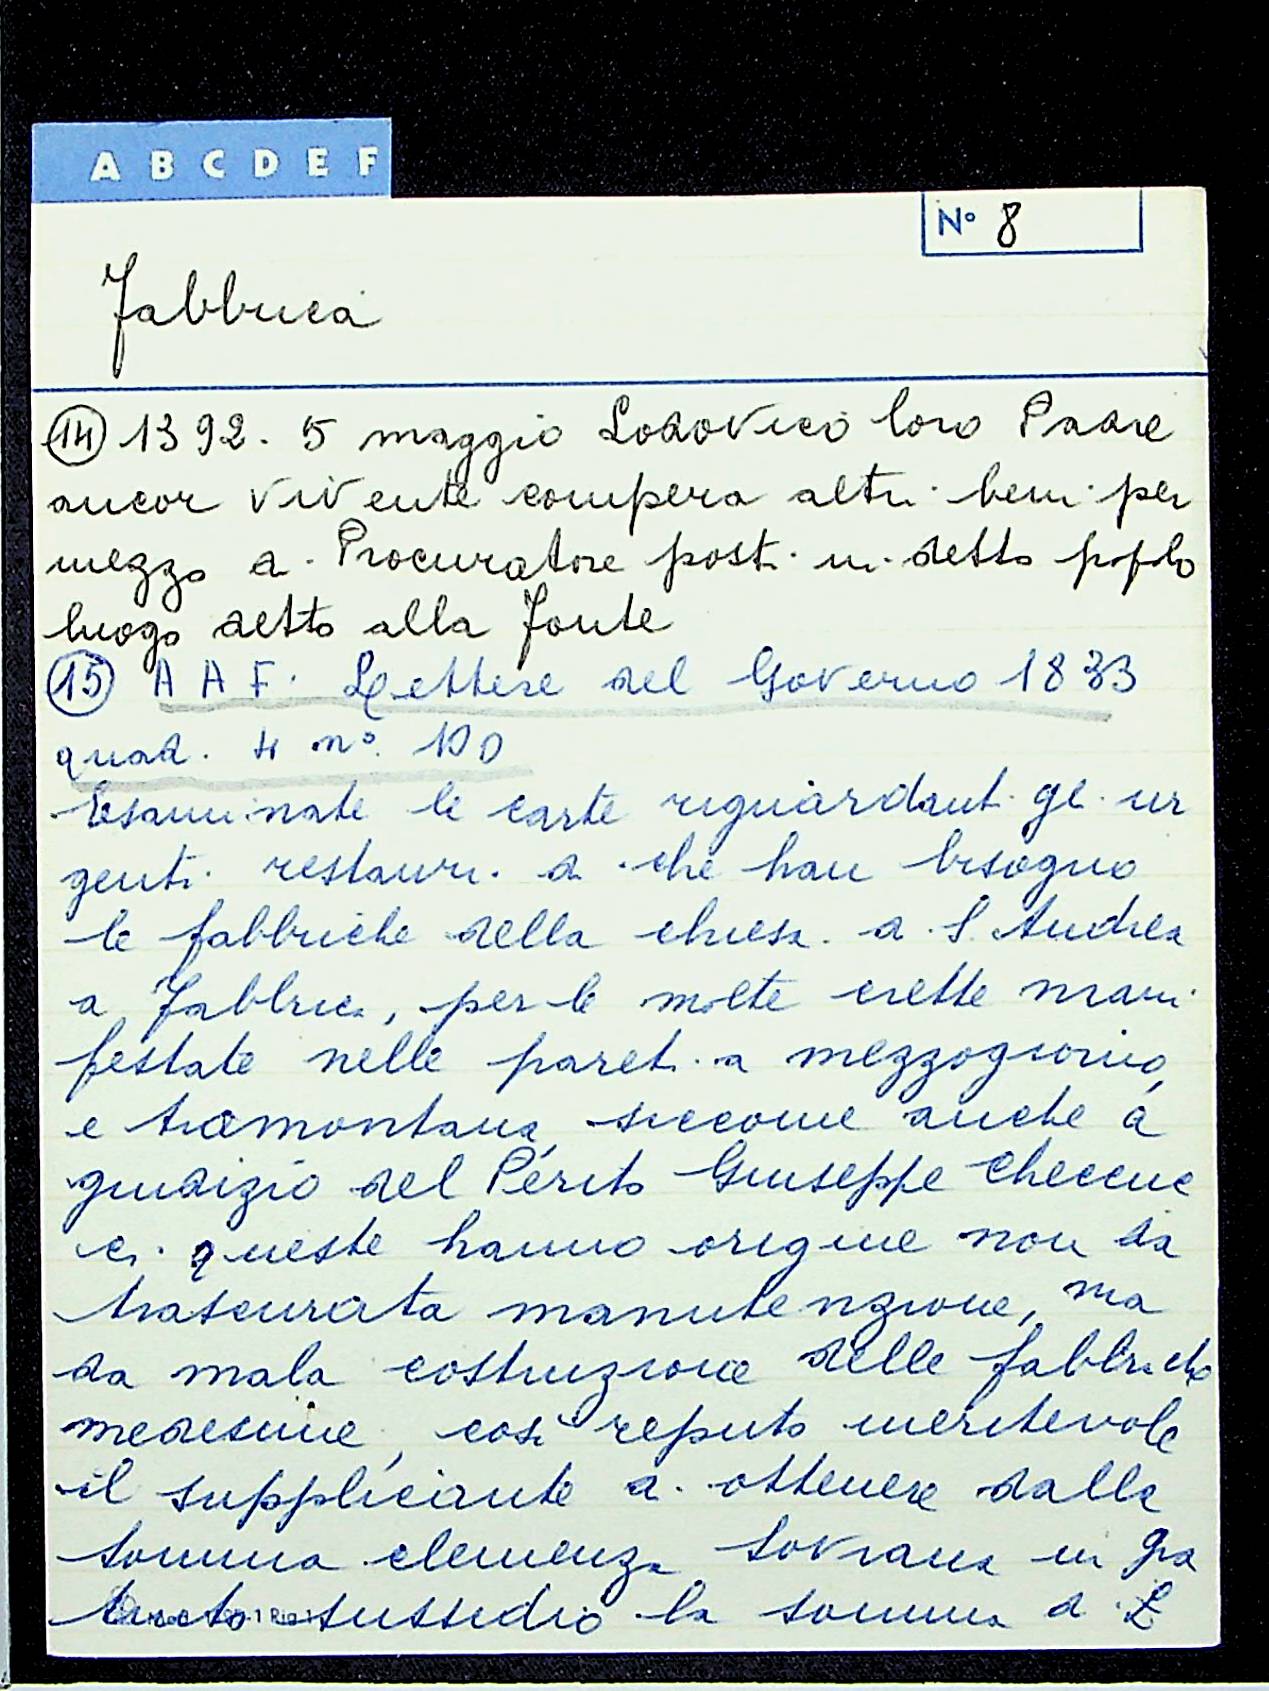 A B C D E F
N° 8
Fabbrica
(14) 1392. 5 maggio Lodovico loro Padre
ancor vivente compera altri beni per
mezzo di Procuratore posti in detto popolo
luogo detto alla Fonte
(15) A A F. Lettere del Governo 1833
quad. 4 n° 100
Esaminate le carte riguardanti gli ur
genti restauri di che han bisogno
le fabbriche della chiesa di S. Andrea
a Fabbrica, per le molte crette mani
festate nelle pareti a mezzogiorno,
e tramontana, siccome anche a
giudizio del Perito Giuseppe Checcuc
ci queste hanno origine non da
trascurata manutenzione, ma
da mala costruzione delle fabbriche
medesime, così reputo meritevole
il supplicante di ottenere dalla
somma clemenza sovrana in gra
tuito sussidio la somma di £